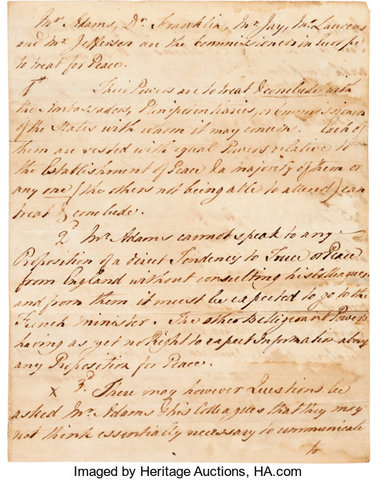 Mr Adams, Dr Franklin, Mr Jay, Mr Laurens
and Mr Jefferson are the Commissioners in Europe
to treat for Peace.
1st Their Powers are to treat & conclude with
the Ambassadors, Plenipotentiaries, or Commissioners
of the States with whom it may concern. Each of
them are vested with equal Powers relative to
the Establishment of Peace & a majority of them or
any one (the others not being able to attend) can
treat & conclude.
2d Mr Adams cannot speak to any
Proposition of a direct Tendency to Truce or Peace
from England without consulting his Colleagues
and from them it must be expected to go to the
French minister. The other Belligerent Powers
having as yet no Right to expect Information about
any Proposition for Peace.
X 3d There may however Questions be
asked Mr Adams & his Colleagues that they may
not think essentially necessary to communicate
to
Imaged by Heritage Auctions, HA.com